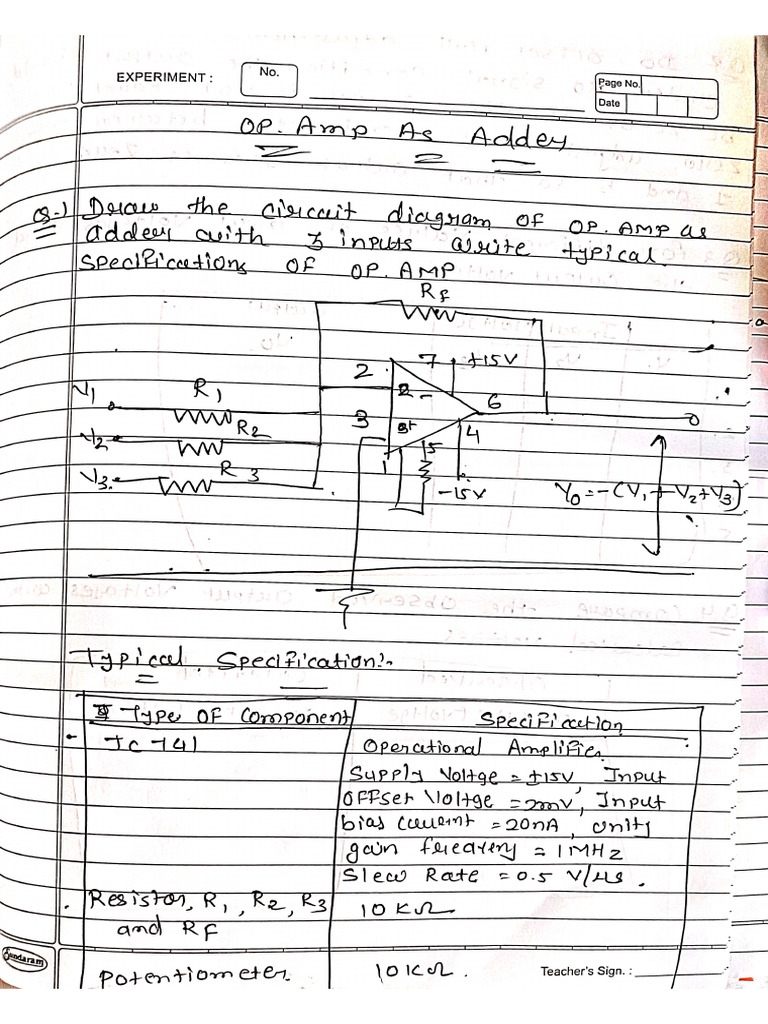 EXPERIMENT :
No.
Page No.
Date
OP. Amp As Adder
Q-1 Draw the circuit diagram of OP. AMP as
adder with 3 inputs write typical
specifications of OP. AMP
Rf
2 7 +15V
V1 R1 2 - 6
3
V2 R2 4
1 5
V3 R3 -15V Vo = -(V1 + V2 + V3)
Typical Specification:-
Type of Component Specification
Ic 741 Operational Amplifier
Supply Voltge = ±15V, Input
OFFset Voltge = 2mV, Input
bias current = 20nA, unity
gain = 1MHz
Slew Rate = 0.5 V/µs.
Resistor, R1, R2, R3 10KΩ
and RF
Potentiometer 10KΩ.
Sundaram
Teacher's Sign. :